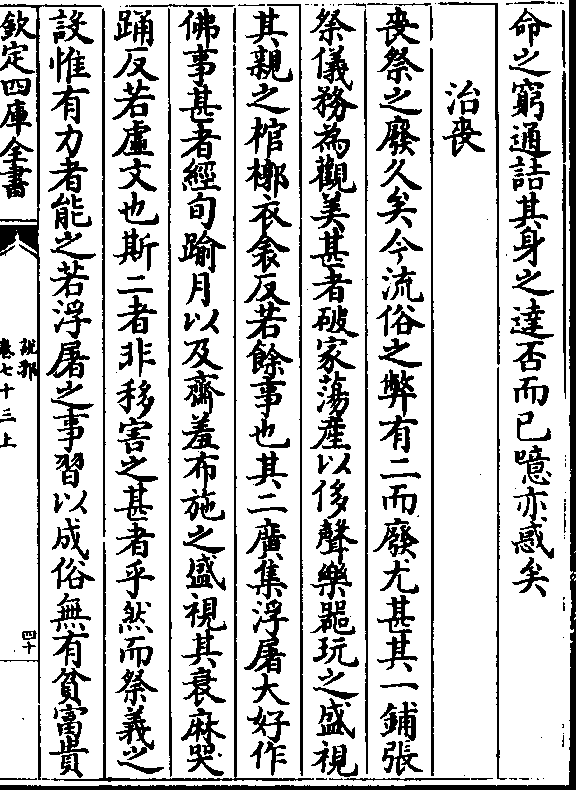 命之窮通詰其身之達否而已噫亦惑矣
治喪
喪祭之廢久矣今流俗之弊有二而廢尤甚其一鋪張
祭儀務為觀美甚者破家蕩産以侈聲樂噐玩之盛視
其親之棺槨衣衾反若餘事也其二廣集浮屠大好作
佛事甚者經旬踰月以及齋羞布施之盛視其衰麻哭
踊反若虛文也斯二者非移害之甚者乎然而祭義之
設惟有力者能之若浮屠之事習以成俗無有貧富貴
欽定四庫全書
說郛
卷七十三上
四十